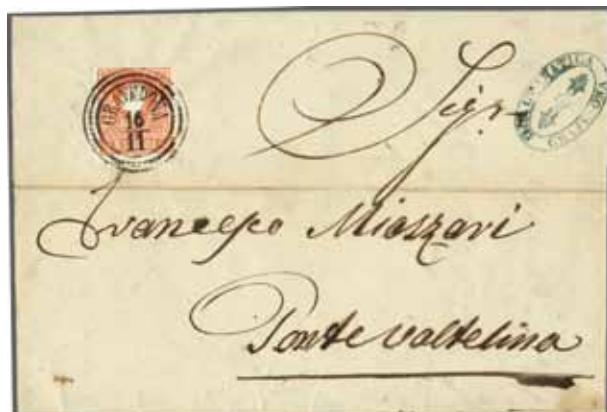 GRAVEDONA
16
11
Sigr
Francesco Miozzari
Ponte valtelina